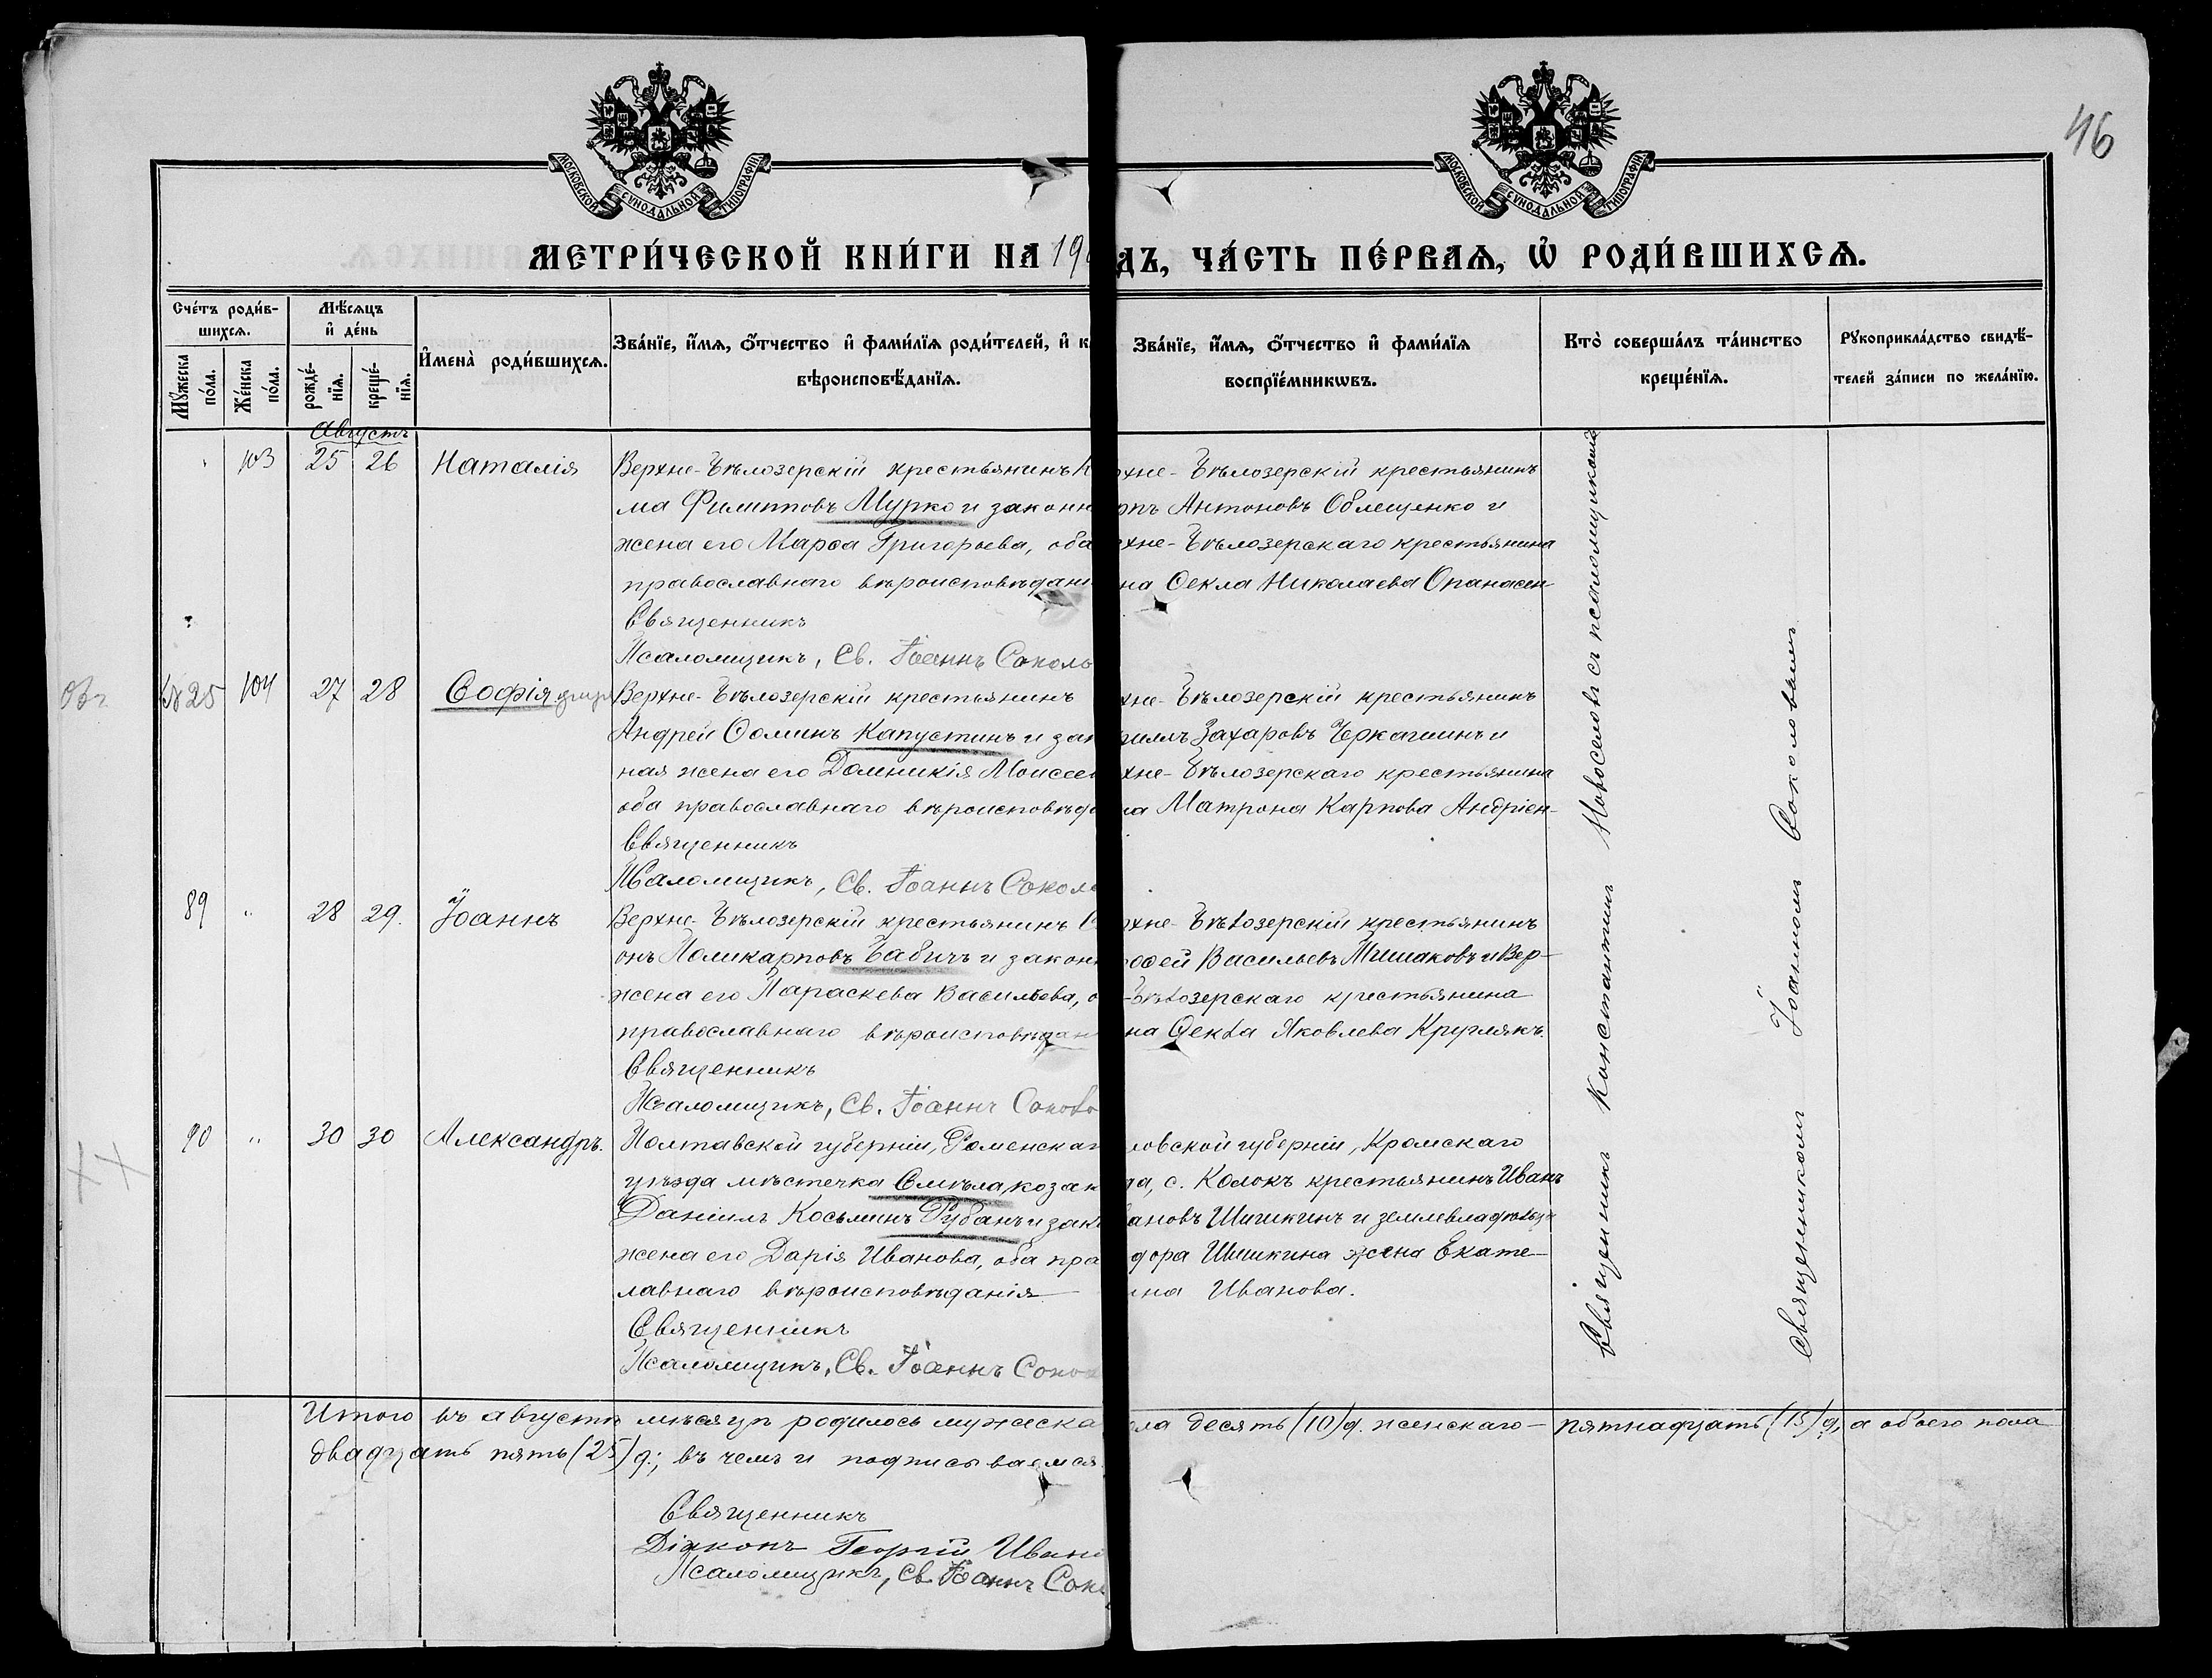 46
МОСКОВСКОЙ СѴНОДАЛЬНОЙ ТИПОГРАФІИ
МОСКОВСКОЙ СѴНОДАЛЬНОЙ ТИПОГРАФІИ
МЕТРИ́ЧЕСКОЙ КНИ́ГИ НА 19
ДЪ, ЧА́СТЬ ПЕ́РВАѦ, Ѡ҆ РОДИ́ВШИХСѦ.
Сче́тъ роди́в-
шихсѧ.
Мꙋ́жеска по́ла.
Же́нска по́ла.
Мѣ́сѧцъ
и҆ де́нь
рожде́-нїѧ.
креще́-нїѧ.
И҆мена̀ роди́вшихсѧ.
Зва́нїе, и҆́мѧ, ѻ҆́тчество и҆ фами́лїѧ роди́телей, и҆ к
вѣроисповѣ́данїѧ.
Зва́нїе, и҆́мѧ, ѻ҆́тчество и҆ фами́лїѧ
воспрїе́мникѡвъ.
Кто̀ соверша́лъ та́инство
креще́нїѧ.
Рꙋкоприкла́дство свидѣ́-
телей за́писи по жела́нїю.
Августъ
103 25 26 Наталія
Верхне-Бѣлозерскій крестьянинъ К
ма Филипповъ Мурко и законн
жена его Марѳа Григорьева, оба
православнаго вѣроисповѣдані
Священникъ
Псаломщикъ, Св. Іоаннъ Соколо
хне-Бѣлозерскій крестьянинъ
рпъ Антоновъ Облещенко и
хне-Бѣлозерскаго крестьянина
на Ѳекла Николаева Опанасен
Об.
№25 104 27 28 Софія
Верхне-Бѣлозерскій крестьянинъ
Андрей Ѳоминъ Капустинъ и зак
ная жена его Домникія Моисее
оба православнаго вѣроисповѣд
Священникъ
Псаломщикъ, Св. Іоаннъ Соколо
хне-Бѣлозерскій крестьянинъ
Захаровъ Черкашинъ и
хне-Бѣлозерскаго крестьянина
на Матрона Карпова Андріен-
89 " 28 29. Іоаннъ
Верхне-Бѣлозерскій крестьянинъ С
онъ Поликарповъ Бабичъ и закон
жена его Параскева Васильева, о
православнаго вѣроисповѣдан
Священникъ
Псаломщикъ, Св. Іоаннъ Соколо
рхне-Бѣлозерскій крестьянинъ
роѳей Васильевъ Тишаковъ и Вер-
-Бѣлозерскаго крестьянина
на Ѳекла Яковлева Круглякъ.
90 " 30 30 Александръ.
Полтавской губерніи, Роменскаг
уѣзда мѣстечка Смѣла, козак
Даніилъ Косьминъ Рубанъ и зак
жена его Дарія Иванова, оба пра
лавнаго вѣроисповѣданія
Священникъ
Псаломщикъ, Св. Іоаннъ Сокол
ловской губерніи, Кромскаго
да, с. Колокъ крестьянинъ Иванъ
ановъ Шишкинъ и землевладѣльца
дора Шишкина жена Екате-
ина Иванова.
Священникъ Константинъ Новоселовъ съ псаломщикомъ
Священникомъ Іоанномъ Соколовымъ
Итого въ августѣ мѣсяцѣ родилось мужеска
ла десять (10) д. женскаго — пятнадцать (15) д, а обоего пола
двадцать пять (25) д.; въ чемъ и подписываемся
Священникъ
Діаконъ Георгій Ивано
Псаломщикъ, Св. Іоаннъ Соко